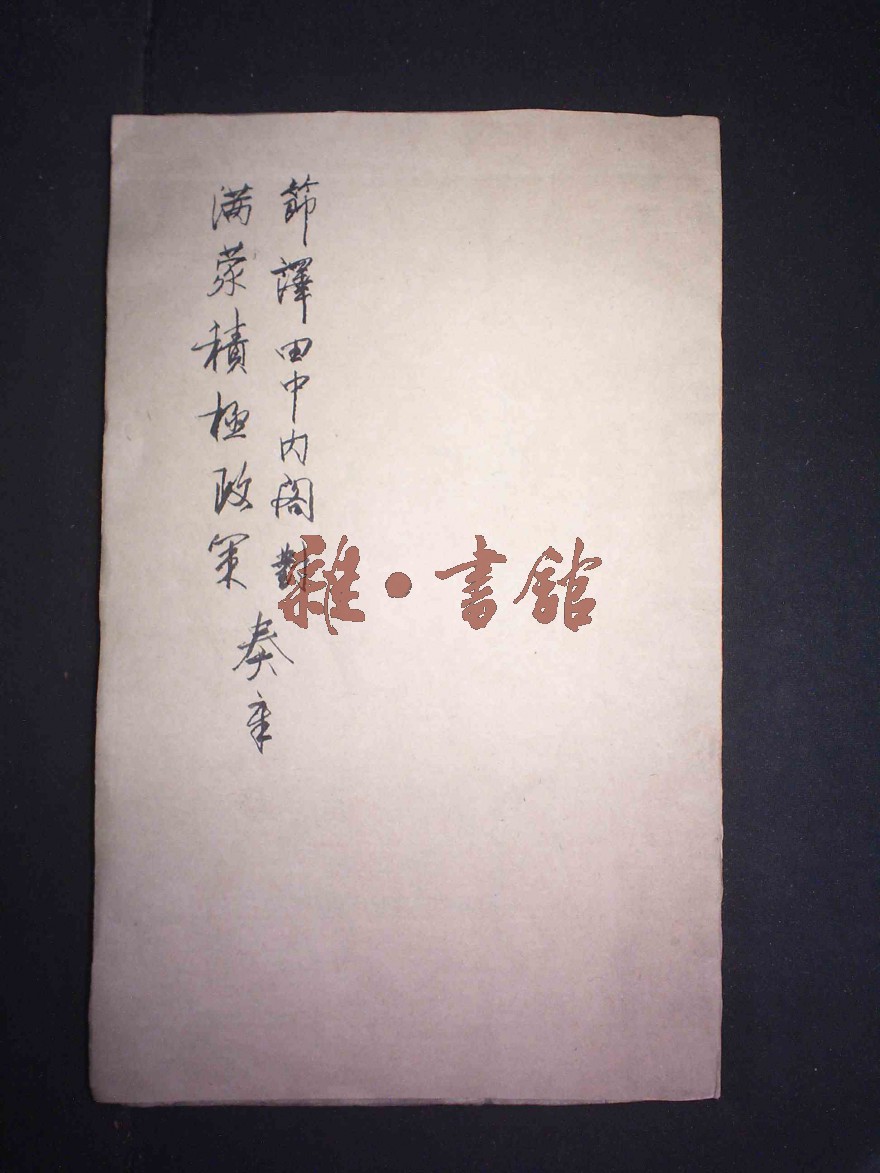 節譯田中内阁對
满蒙積極政策
奏章
雜·書館